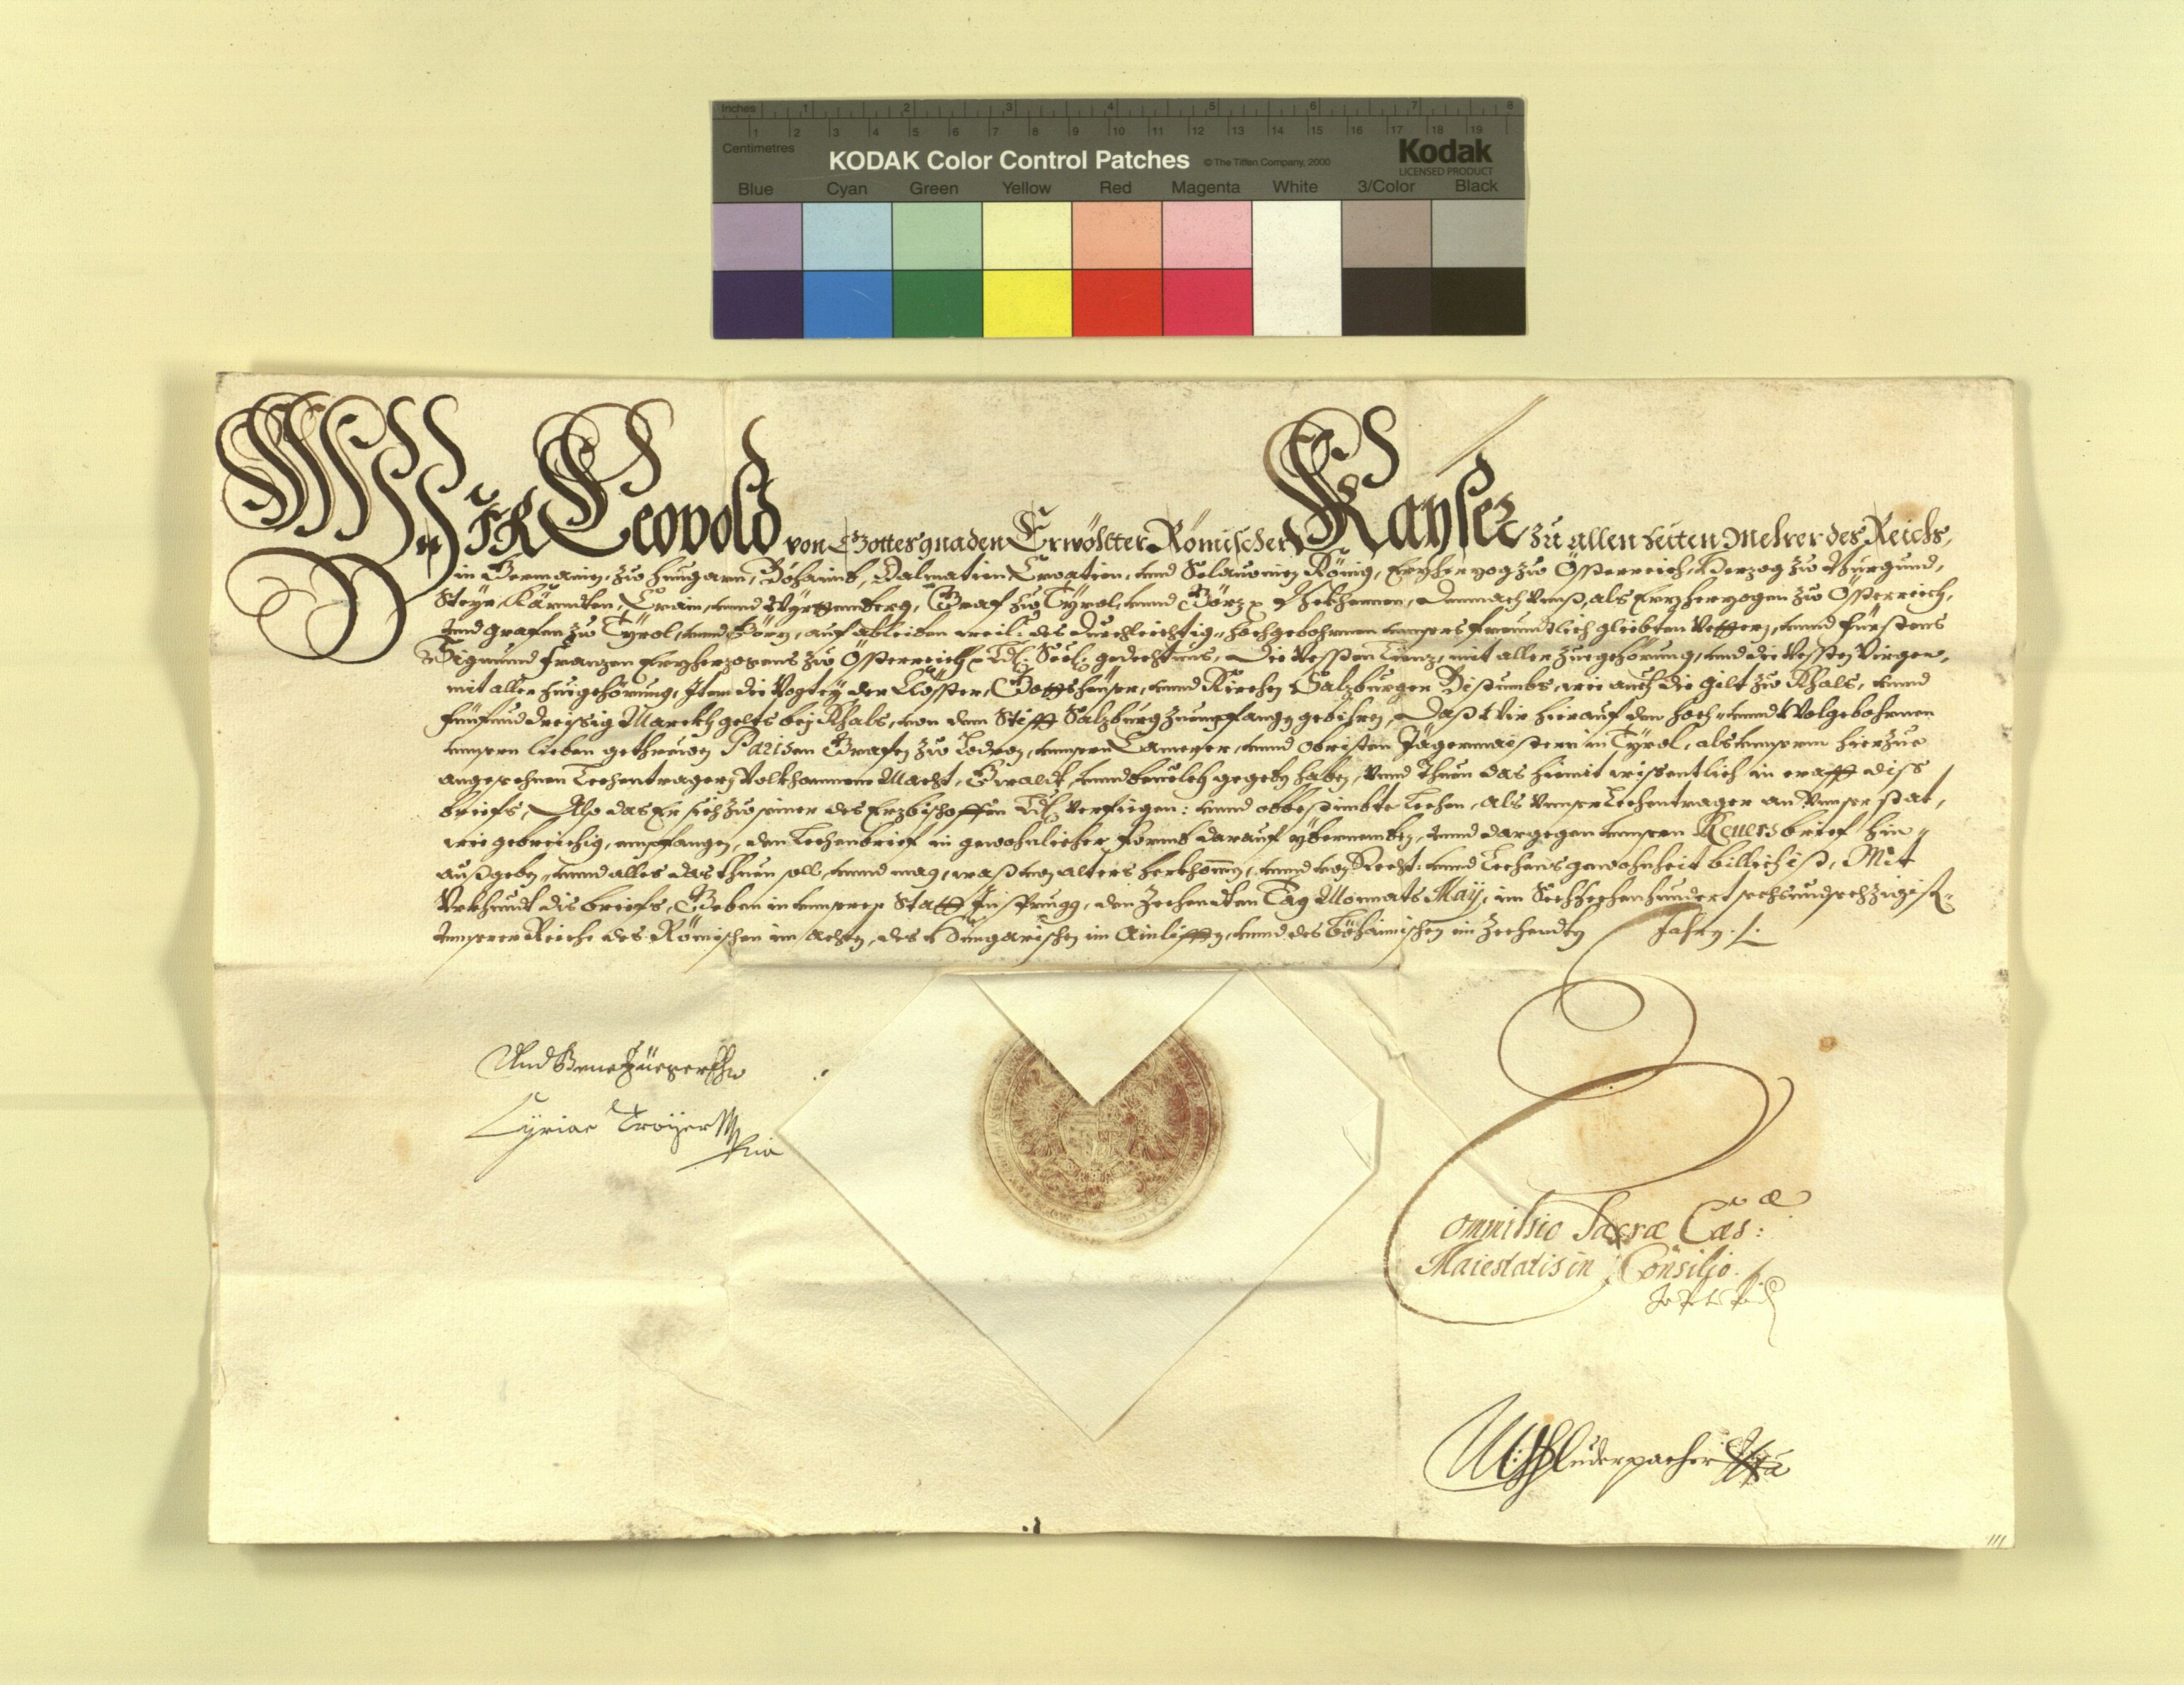 Inches 1 2 3 4 5 6 7 8
1 2 3 4 5 6 7 8 9 10 11 12 13 14 15 16 17 18 19
Centimetres
KODAK Color Control Patches © The Tiffen Company, 2000 Kodak
LICENSED PRODUCT
Blue Cyan Green Yellow Red Magenta White 3/Color Black
WIR Leopold von Gottes gnaden Erwölter Römischer Kayser, zu allen Zeiten Mehrer des Reichs,
in Germanien, zu Hungarn, Böhaimb, Dalmatien, Croatien, unnd Sclavonien König, Erzherzog zu Össterreich, Herzog zu Burgund,
Steyr, Kärndten, Crain, unnd Württemberg, Graf zu Tyrol, unnd Görz Bekhennen, Demnach unnß, als Erzherzogen zu Össterreich,
unnd Grafen zu Tyrol, unnd Görz, auf ableiben weil: des Durchleichtig: Hochgebohrnen unnsers freundtlich gliebten Vettern, unnd Fürstens
Sigmund Franzen Erzherzogens zu Össterreich Seel: gedechtnus, Die Vessten Lienz, mit aller Zuegehörung, unnd die Vessten Virgen,
mit aller Zuegehörung, Item die Vogtey der Clöster, Gottsheuser, unnd Kirchen Salzburger Bistumbs, wie auch die gilt zu Khals, unnd
fünfunddreyssig Marckh gelts bey Khals, von dem Stifft Salzburg zu empfangen gebihren, Daß Wir hierauf dem Hoch: unnd Wolgebohrnen
unnsern lieben getreuen Parisen Grafen zu Lodron, unnsern Camerer, unnd obristen Jägermaistern in Tyrol, als unnserm hierzue
angesehnen Lechentragern Volkhommene Macht, Gwaldt, unnd bevelch gegeben haben, unnd Thuen das hiemit wissentlich in crafft diss
briefs, Also das Er sich zu seiner des Erzbischoffen verfiegen: unnd obbestimbte Lechen, als unnser Lechentrager an unnser stat,
wie gebreichig, empfangen, den Lechenbrief in gewohnlicher formb darauf ybernemben, unnd dargegen unnsern Revers brief hin„
außgeben, unnd alles das thuen soll, unnd mag, waß von alters herkhomen, unnd von Recht: unnd Lechens gewohnheit billich ist, Mit
Urkhundt dis briefs, Geben in unnserer Statt Insprugg, den Zechendten Tag Monnats May, im Sechzechenhundert sechsundsechzigist:
unnserer Reiche des Römischen im achten, des Hungarischen im Ainlifften, unnd des Böhaimischen im Zechendten Jahrn.
Cyriac Troyer
Commissio Sacræ Cæs:
Maiestatis in Consilio